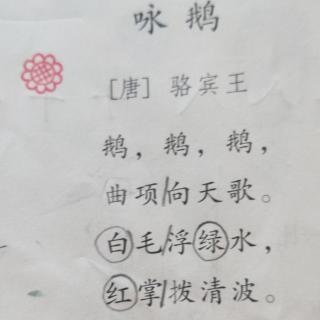 咏鹅
[唐] 骆宾王
鹅，鹅，鹅，
曲项/向天歌。
白毛/浮绿水，
红掌/拨清波。